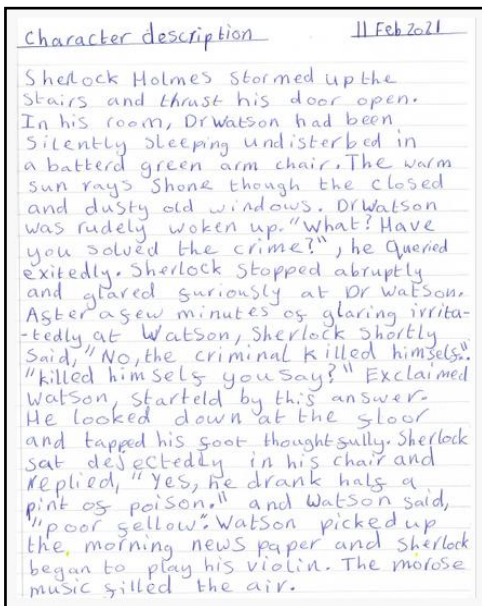 Character description 11 Feb 2021
Sherlock Holmes stormed up the
stairs and thrust his door open.
In his room, Dr Watson had been
silently sleeping undisterbed in
a batterd green arm chair. The warm
sun rays shone though the closed
and dusty old windows. Dr Watson
was rudely woken up. "What? Have
you solved the crime?", he queried
exitedly. Sherlock stopped abruptly
and glared furiously at Dr Watson.
After a few minutes of glaring irrita-
-tedly at Watson, Sherlock shortly
said, "No, the criminal killed himself".
"killed himself you say?" Exclaimed
Watson, starteld by this answer.
He looked down at the floor
and tapped his foot thoughtfully. Sherlock
sat dejectedly in his chair and
replied, "Yes, he drank half a
pint of poison." and Watson said,
"poor fellow". Watson picked up
the morning news paper and Sherlock
began to play his violin. The morose
music filled the air.